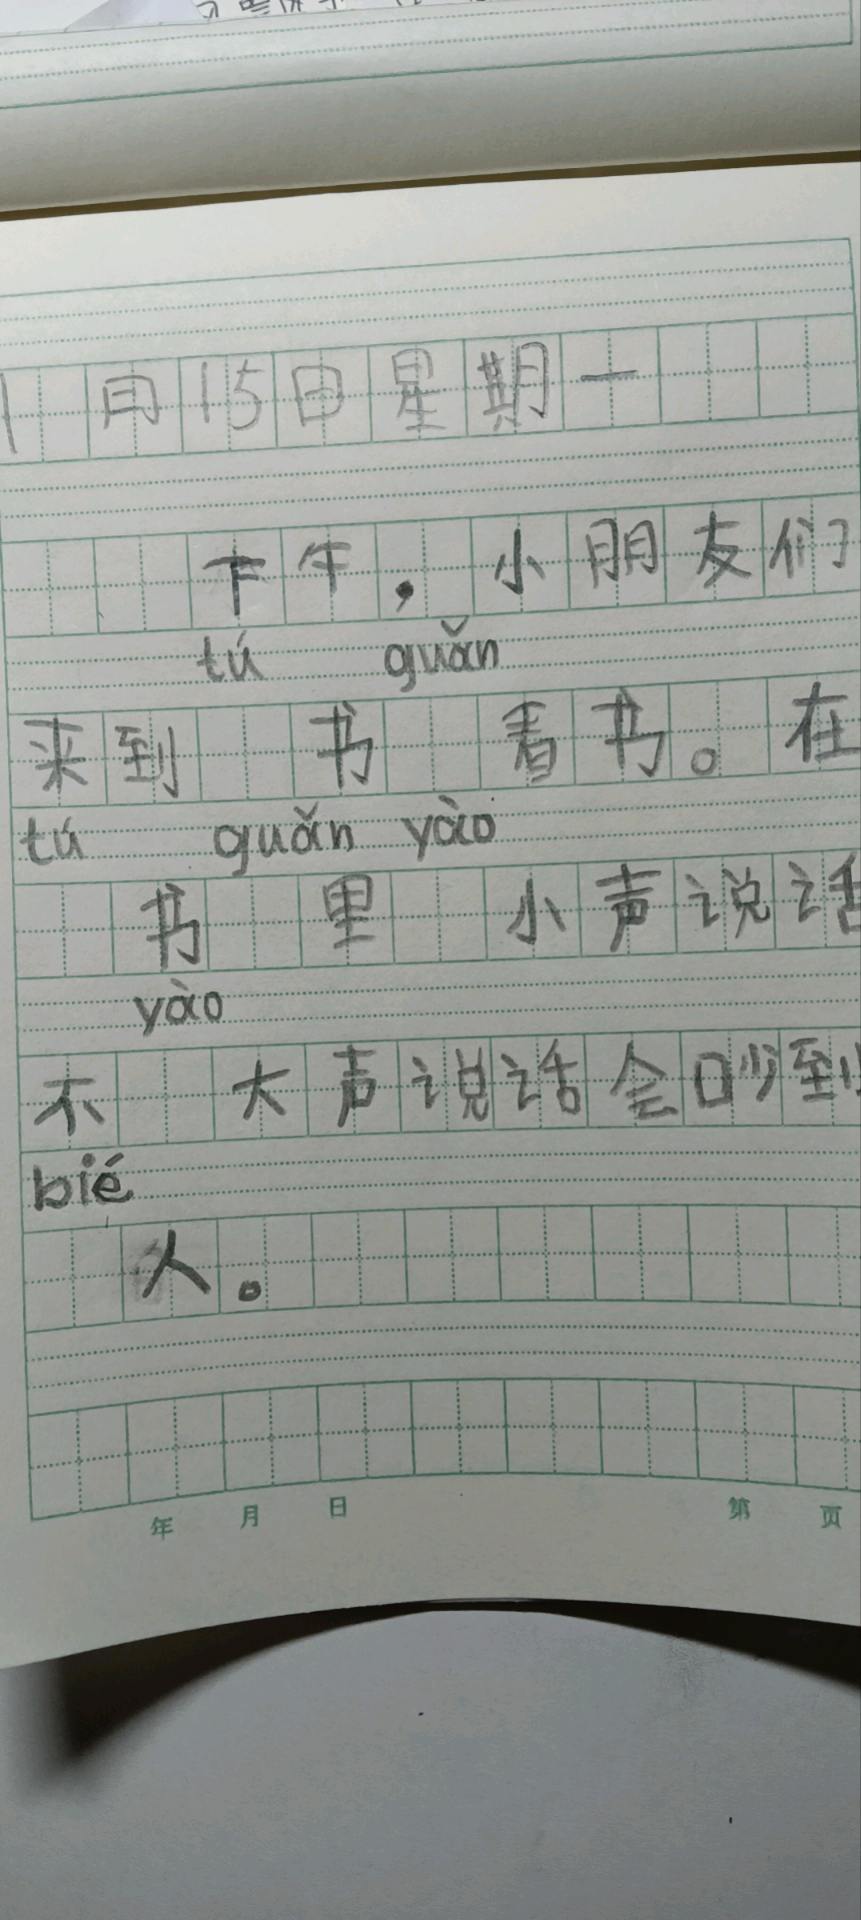 1月15日星期一
下午，小朋友们
tú guǎn
来到 书 看书。在
tú guǎn yào
书 里 小声说话
yào
不 大声说话会吵到
bié
人。
年 月 日 第 页